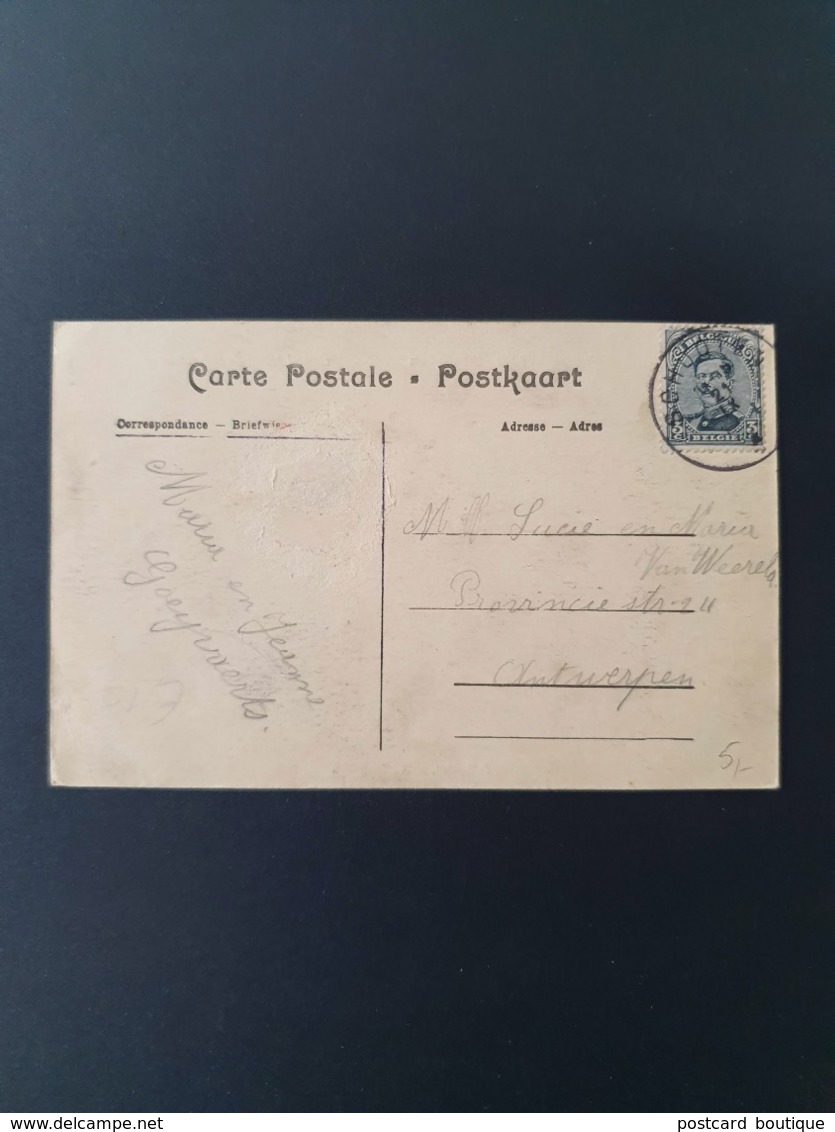 Carte Postale - Postkaart
Correspondance — Briefwis
Adresse — Adres
BELGIQUE
3
BELGIË
Maria en Jeanne
Goeyvaerts.
M ll Lucie en Maria
Van Weerelt
Provincie str.
Antwerpen
5,-
delcampe.net
postcard boutique